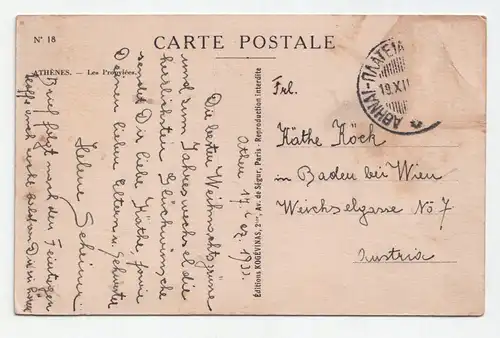 Nº 18
CARTE POSTALE
ATHÈNES. — Les Propylées.
ΑΘΗΝΑΙ-ΠΛΑΤΕΙΑ
19 XII
Athen 17. Dez.
Die besten Weihnachtsgrüsse
und zum Jahreswechsel die
herzlichsten Glückwünsche
sendet Dir liebe Käthe, sowie
Deinen lieben Eltern u. Geschwister
Helene
Brief folgt nach den Feiertagen
Hoffe auch recht bald von Dir zu hören
Editions KOGEVINAS, 2bis, Av. de Ségur, Paris - Reproduction interdite
Frl.
Käthe Köck
in Baden bei Wien
Weichselgasse No 7
Austria